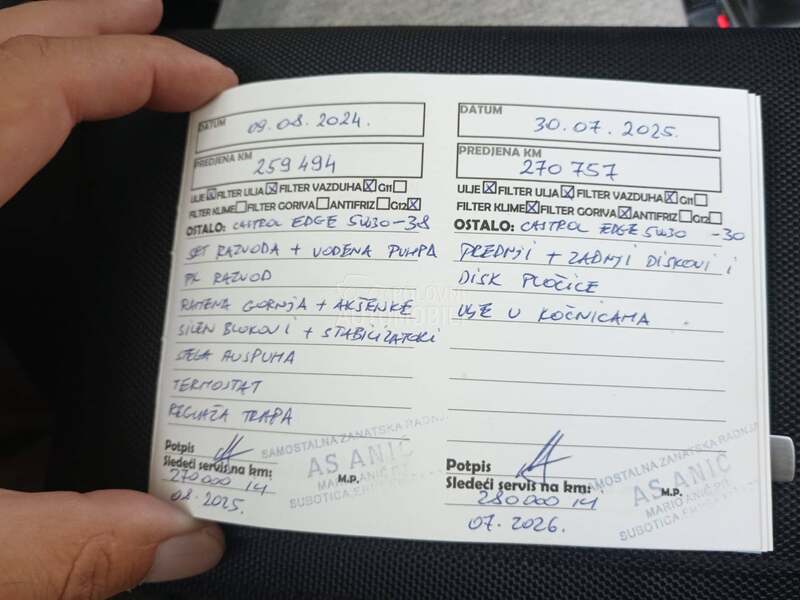 DATUM 09.08.2024.
PREDJENA KM 259494
ULJE ☒ FILTER ULJA ☒ FILTER VAZDUHA ☒ G11 ☐
FILTER KLIME ☐ FILTER GORIVA ☐ ANTIFRIZ ☐ G12 ☒
OSTALO: CASTROL EDGE 5W30 -38
SET RAZVODA + VODENA PUMPA
PK RAZVOD
RAMENA GORNJA + AKŠENKE
SILEN BLOKOVI + STABILIZATORI
ŠTELA AUSPUHA
TERMOSTAT
REGLAŽA TRAPA
Potpis
Sledeći servis na km:
270000 ili
08.2025.
M.P.
SAMOSTALNA ZANATSKA RADNJA
AS ANIĆ
SUBOTICA
DATUM 30.07.2025.
PREDJENA KM 270757
ULJE ☒ FILTER ULJA ☒ FILTER VAZDUHA ☒ G11 ☐
FILTER KLIME ☒ FILTER GORIVA ☒ ANTIFRIZ ☐ G12 ☐
OSTALO: CASTROL EDGE 5W30 -30
PREDNJI + ZADNJI DISKOVI i
DISK PLOČICE
ULJE U KOČNICAMA
Potpis
Sledeći servis na km:
280000 ili
07.2026.
M.P.
SAMOSTALNA ZANATSKA RADNJA
AS ANIĆ
SUBOTICA
POLOVNI
AUTOMOBILI